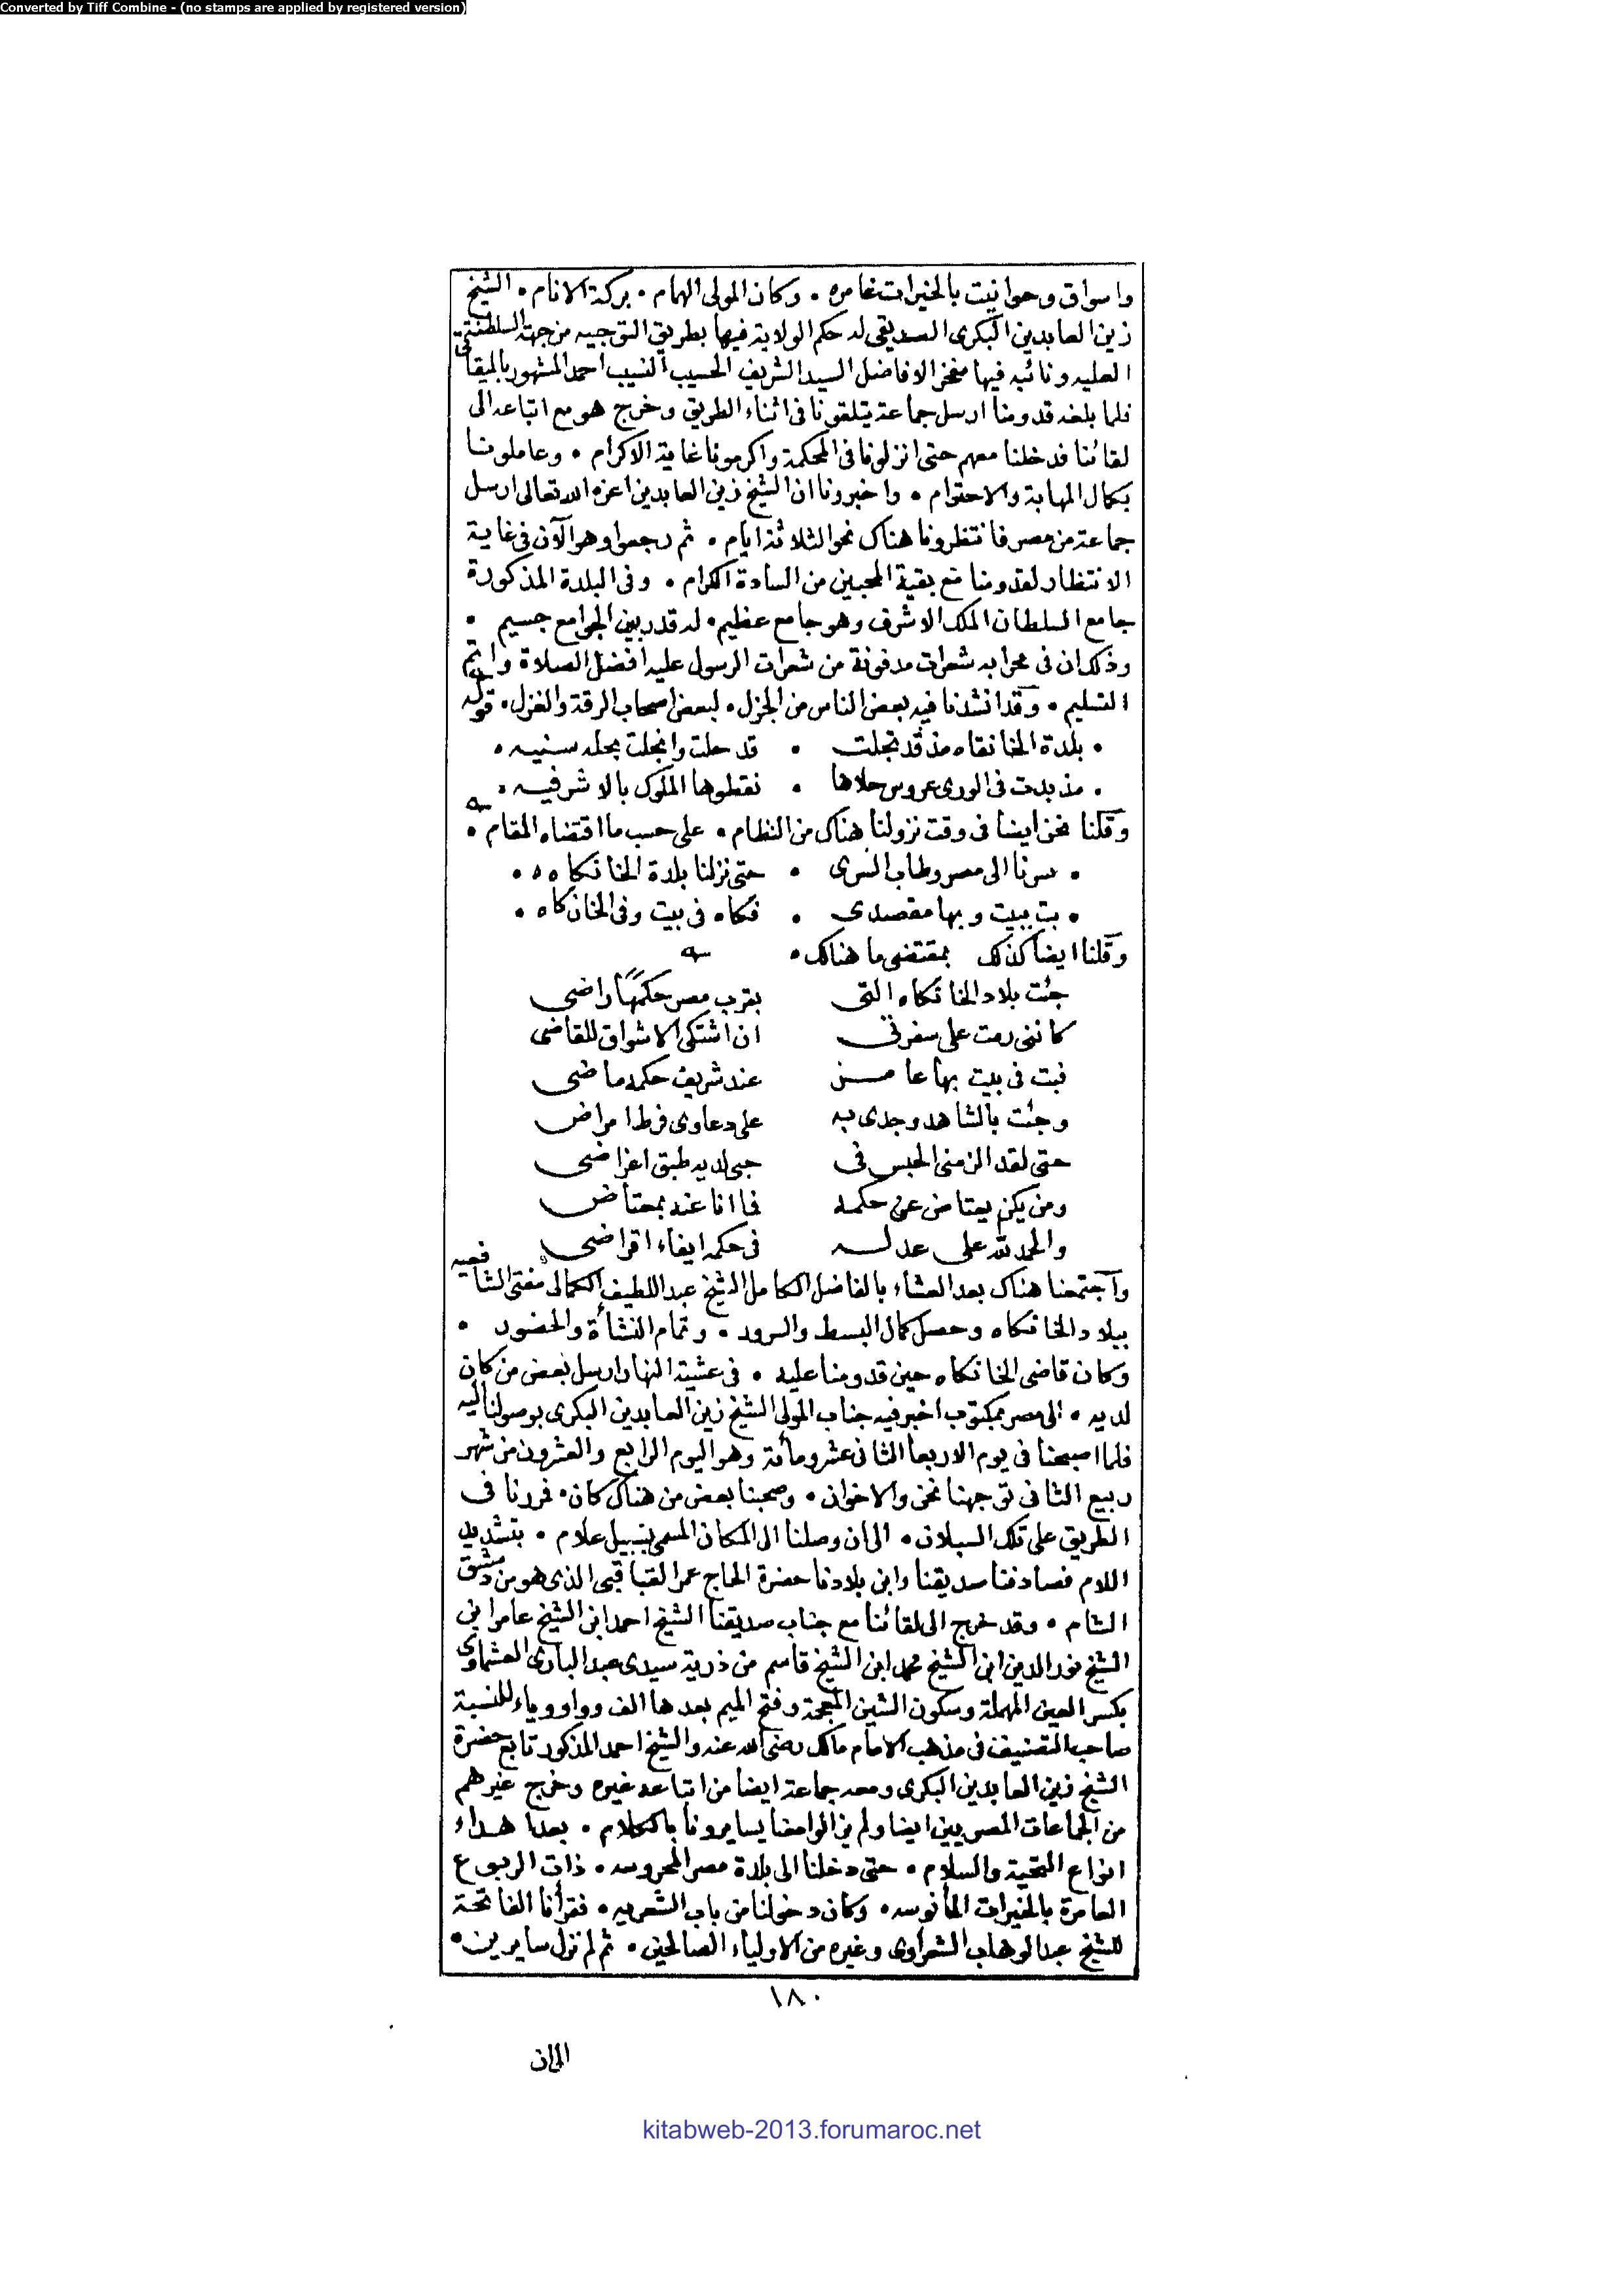 Converted by Tiff Combine - (no stamps are applied by registered version)
واسواق وحوانيت بالخيرات غامره ۰ وكان المولى الهمام ۰ بركة الانام ۰ الشيخ
زين العابدين البكرى الصديقى له حكم الولاية فيها بطريق التوجيه من جهة السلطنة
العليه ونائبه فيها مفخر الافاضل السيد الشريف الحسيب النسيب احمد المشهور بالميقاتى
فلما بلغه قدومنا ارسل جماعة يتلقونا فى اثناء الطريق وخرج هو مع اتباعه الى
لقائنا فدخلنا معهم حتى انزلونا فى المحكمة واكرمونا غاية الاكرام ۰ وعاملونا
بكمال المهابة والاحترام ۰ واخبرونا ان الشيخ زين العابدين اعزه الله تعالى ارسل
جماعة من مصر فانتظرونا هناك نحو الثلاثة ايام ۰ ثم رجعوا وهو الآن فى غاية
الانتظار لقدومنا مع بقية المحبين من السادة الكرام ۰ وفى البلدة المذكورة
جامع السلطان الملك الاشرف وهو جامع عظيم ۰ له قدر بين الجوامع جسيم ۰
وذلك ان فى محرابه شعرات مدفونة من شعرات الرسول عليه افضل الصلاة واتم
التسليم ۰ وقد انشدنا فيه بعض الناس من الجزل ۰ لبعض اصحاب الرقة والغزل ۰ قوله
۰ بلدة الخانقاه مذ قد تجلت ۰ قد حلت وانجلت بحله سنيه ۰
۰ مذ بدت فى الورى عروس حلاها ۰ نقطوها الملوك بالاشرفيه ۰
وقلنا نحن ايضا فى وقت نزولنا هناك من النظام ۰ على حسب ما اقتضاه المقام ۰
۰ سرنا الى مصر وطاب السرى ۰ حتى نزلنا بلدة الخانكاه ۰
۰ بت ببيت وبها مقصدى ۰ فكاه فى بيت وفى الخان كاه ۰
وقلنا ايضا كذلك بمقتضى ما هنالك ۰
جئت بلاد الخانكاه التى بقرب مصر حكمها راضى
كاننى رمت على سفرتى ان اشتكى الاشواق للقاضى
فبت فى بيت بها عامر عند شريف حكمه ماضى
وجئت بالشاهد وجدى به على دعاوى فرط امراض
حتى لقد الزمنى الحبس فى حبى لديه طبق اغراضى
ومن يكن يعتاض عن حكمه فما انا عنه بمعتاض
والحمد لله على عدله فى حكمه ايفاء اقراضى
واجتمعنا هناك بعد العشاء بالفاضل الكامل الشيخ عبد اللطيف الكمالى مفتى الشافعيه
ببلاد الخانكاه وحصل كمال البسط والسرور ۰ وتمام النشأة والحضور ۰
وكان قاضى الخانكاه حين قدومنا عليه ۰ فى عشية النهار ارسل بعض من كان
لديه ۰ الى مصر بمكتوب اخبر فيه جناب المولى الشيخ زين العابدين البكرى بوصولنا اليه
فلما اصبحنا فى يوم الاربعا الثانى عشر ومائة وهو اليوم الرابع والعشرون من شهر
ربيع الثانى توجهنا نحن والاخوان ۰ وصحبنا بعض من هناك كان ۰ فمررنا فى
الطريق على تلك السبلان ۰ الى ان وصلنا الى المكان المسمى بسبيل علام ۰ بتشديد
اللام فصادفنا صديقنا وابن بلادنا حضرة الحاج عمر القباقبى الذى هو من دمشق
الشام ۰ وقد خرج الى لقائنا مع جناب صديقنا الشيخ احمد ابن الشيخ عامر ابن
الشيخ نور الدين ابن الشيخ محمد ابن الشيخ قاسم من ذرية سيدى عبد البارى العشماوى
بكسر العين المهملة وسكون الشين المعجمة وفتح الميم بعدها الف وواو وياء للنسبة
صاحب التصنيف فى مذهب الامام مالك رضى الله عنه والشيخ احمد المذكور تابع حضرة
الشيخ زين العابدين البكرى ومعه جماعة ايضا من اتباعه غيره وخرج غيرهم
من الجماعات المصريين ايضا ولم يزالوا معنا يسايرونا بالكلام ۰ بعد اهداء
انواع التحية والسلام ۰ حتى دخلنا الى بلدة مصر المحروسه ۰ ذات الربوع
العامرة بالخيرات المأنوسه ۰ وكان دخولنا من باب الشعريه ۰ فقرأنا الفاتحة
للشيخ عبد الوهاب الشعراوى وغيره من الاولياء الصالحين ۰ ثم لم نزل سايرين ۰
١٨٠
الى ان
kitabweb-2013.forumaroc.net